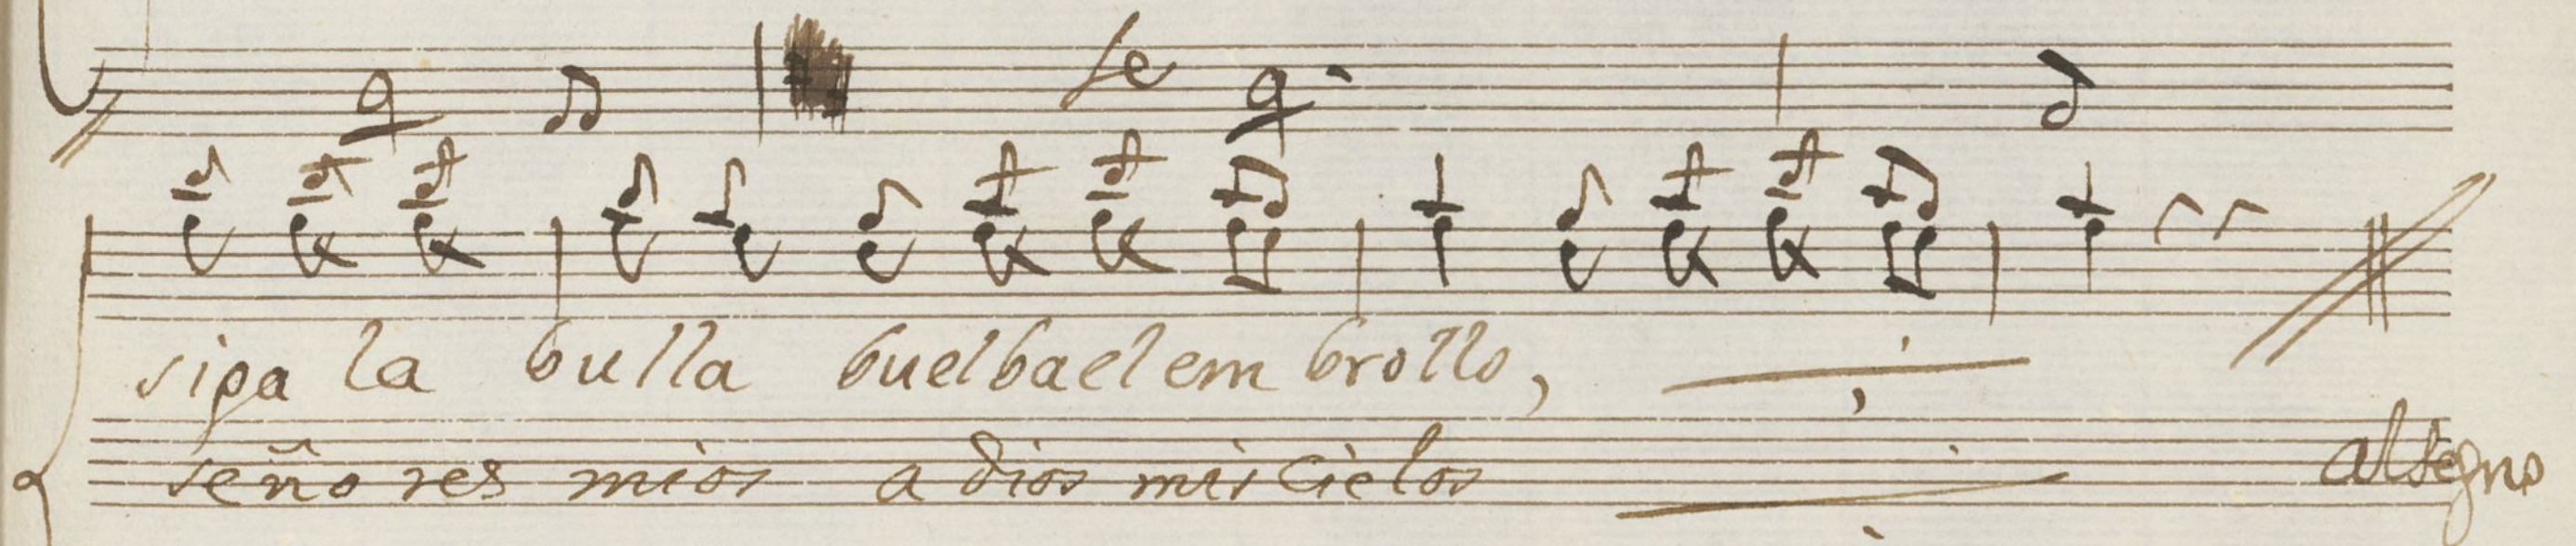 fe
siga la bulla buelba el em brollo,
seño res mios a dios mis Cielos
al segno